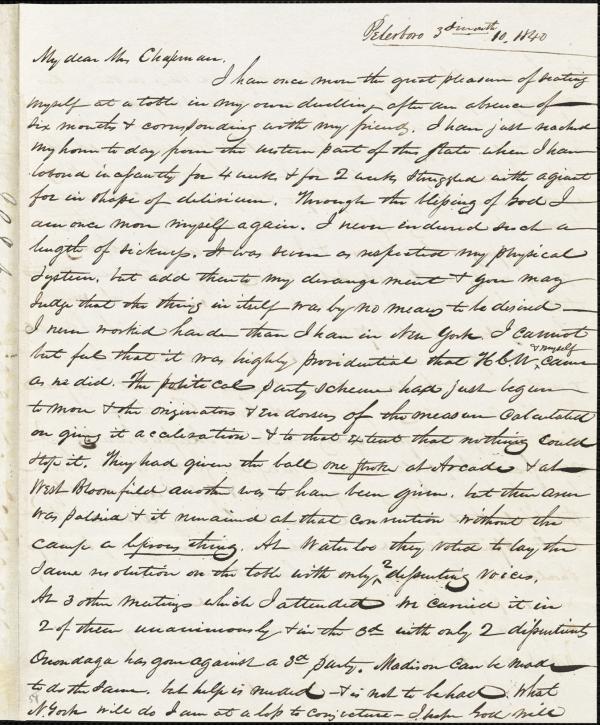 Peterboro 3d month 10, 1840
My dear Mrs Chapman.
I have once more the great pleasure of seating
myself at a table in my own dwelling after an absence of
six months & corresponding with my friends. I have just reached
my home to day from the western part of this State where I have
labored incessantly for 4 weeks & for 2 weeks struggled with a giant
foe in shape of delirium. Through the blessing of God I
am once more myself again. I never endured such a
length of sickness. It was severe as respected my physical
System. but add there to my derangement & you may
Judge that the thing in itself was by no means to be desired —
I never worked harder than I have in New York. I cannot
but feel that it was highly providential that H.C.W. & myself came
as we did. The political party scheme had just begun
to move & the originators & endorsers of the measure calculated
on giving it acceleration - & to that extent that nothing could
stop it. They had given the ball one stroke at Arcade & at
West Bloomfield another was to have been given. but their arm
was palsied & it remained at that convention without the
camp a leprous thing. At Waterloo they voted to lay the
Same resolution on the table with only 2 dissenting voices.
At 3 other meetings which I attended we carried it in
2 of them unanimously & in the 3d with only 2 dissentients
Onondaga has gone against a 3d party. Madison can be made
to do the Same. but help is needed - & is not to be had. What
N. York will do I am at a loss to conjecture - I hope God will